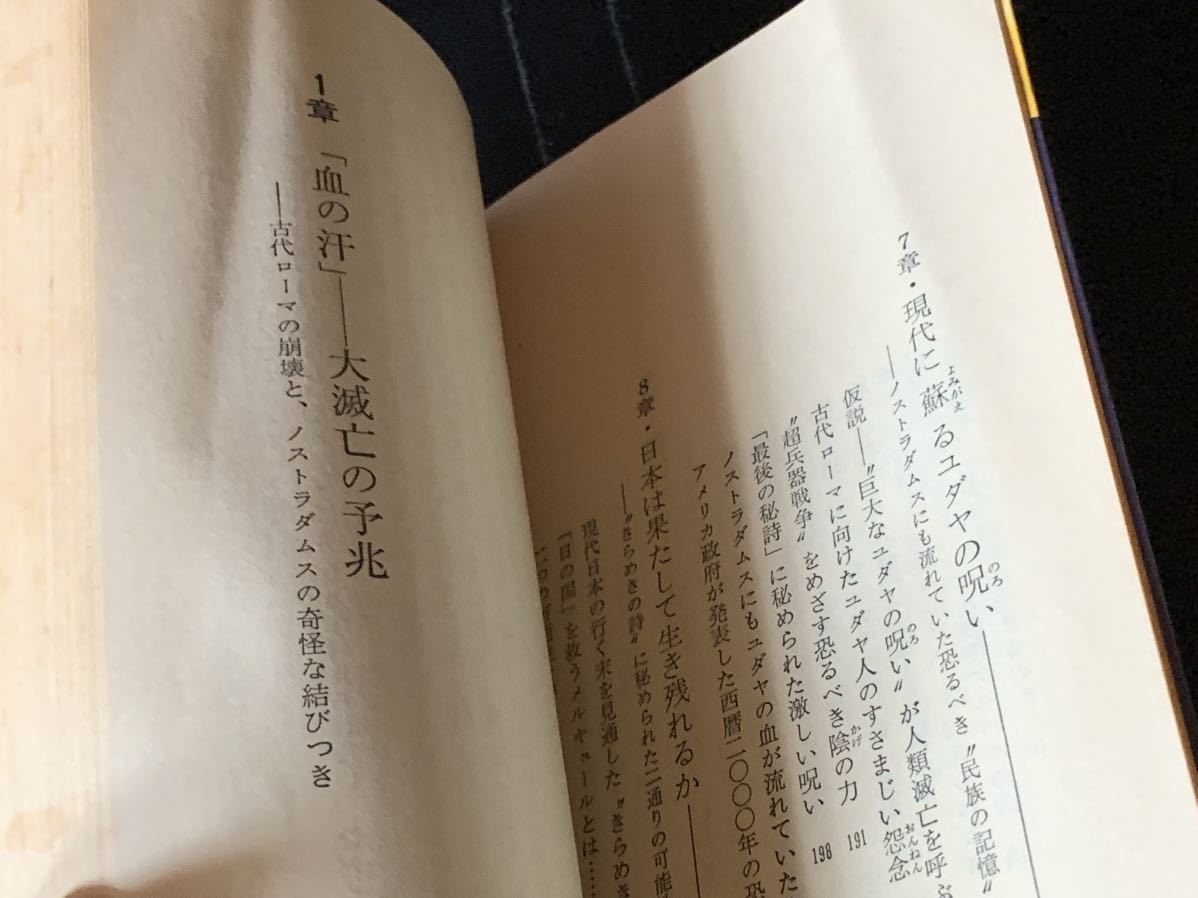 7章・現代に蘇るユダヤの呪い――
よみがえ
のろ
――ノストラダムスにも流れていた恐るべき〝民族の記憶〟
仮説――〝巨大なユダヤの呪い〟が人類滅亡を呼ぶ
のろ
古代ローマに向けたユダヤ人のすさまじい怨念
おんねん
〝超兵器戦争〟をめざす恐るべき陰の力 191
かげ
「最後の秘詩」に秘められた激しい呪い 198
ノストラダムスにもユダヤの血が流れていた
アメリカ政府が発表した西暦二〇〇〇年の恐
8章・日本は果たして生き残れるか――
――〝きらめきの詩〟に秘められた二通りの可能
現代日本の行く末を見通した〝きらめき
「日の国」を救うメルキュールとは……
1章 「血の汗」――大滅亡の予兆
――古代ローマの崩壊と、ノストラダムスの奇怪な結びつき